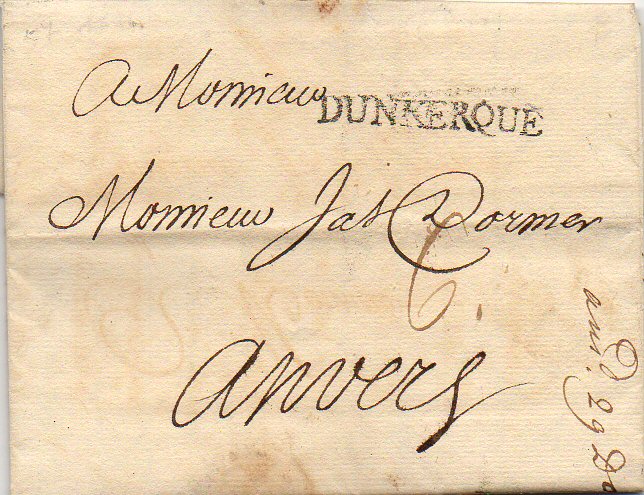 A Monsieur
DUNKERQUE
Monsieur Jas Dormer
6
Anvers
29 De